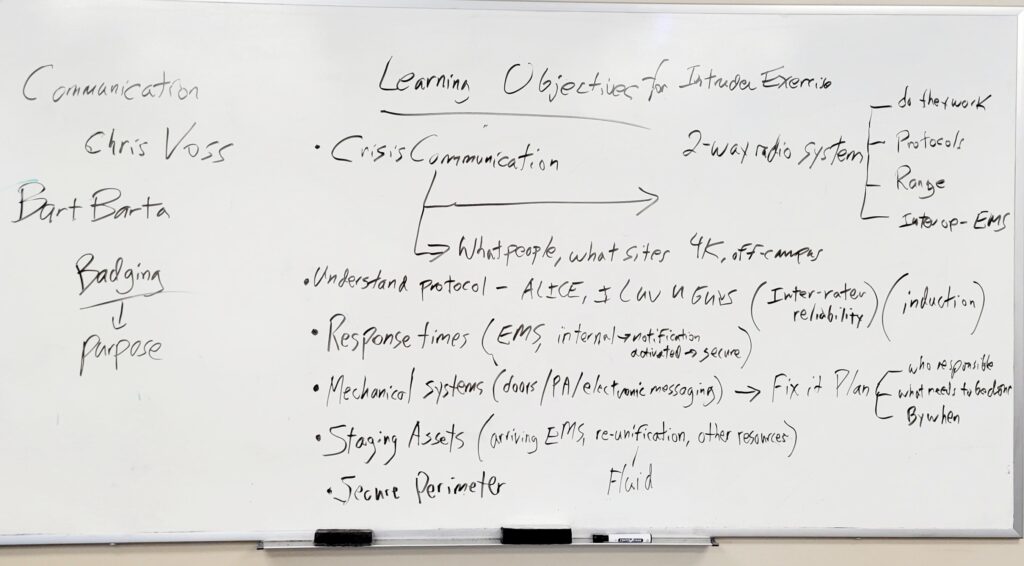 Communication
Chris Voss
Bart Barta
Badging
purpose
Learning Objectives for Intruder Exercise
• Crisis Communication
2-way radio system
do they work
Protocols
Range
Inter op - EMS
What people, what sites 4K, off-campus
• Understand protocol - ALICE, I Luv U Guys (Inter-rater reliability) (induction)
• Response times (EMS, internal → notification
activated → secure)
• Mechanical systems (doors/PA/electronic messaging) → Fix it Plan
who responsible
what needs to be done
By when
• Staging Assets (arriving EMS, re-unification, other resources)
Fluid
• Secure Perimeter